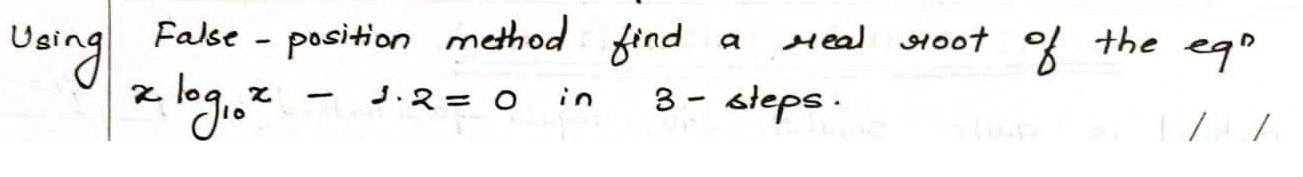 Using False - position method find a real root of the eqn
x log₁₀x - 1.2 = 0 in 3 - steps.